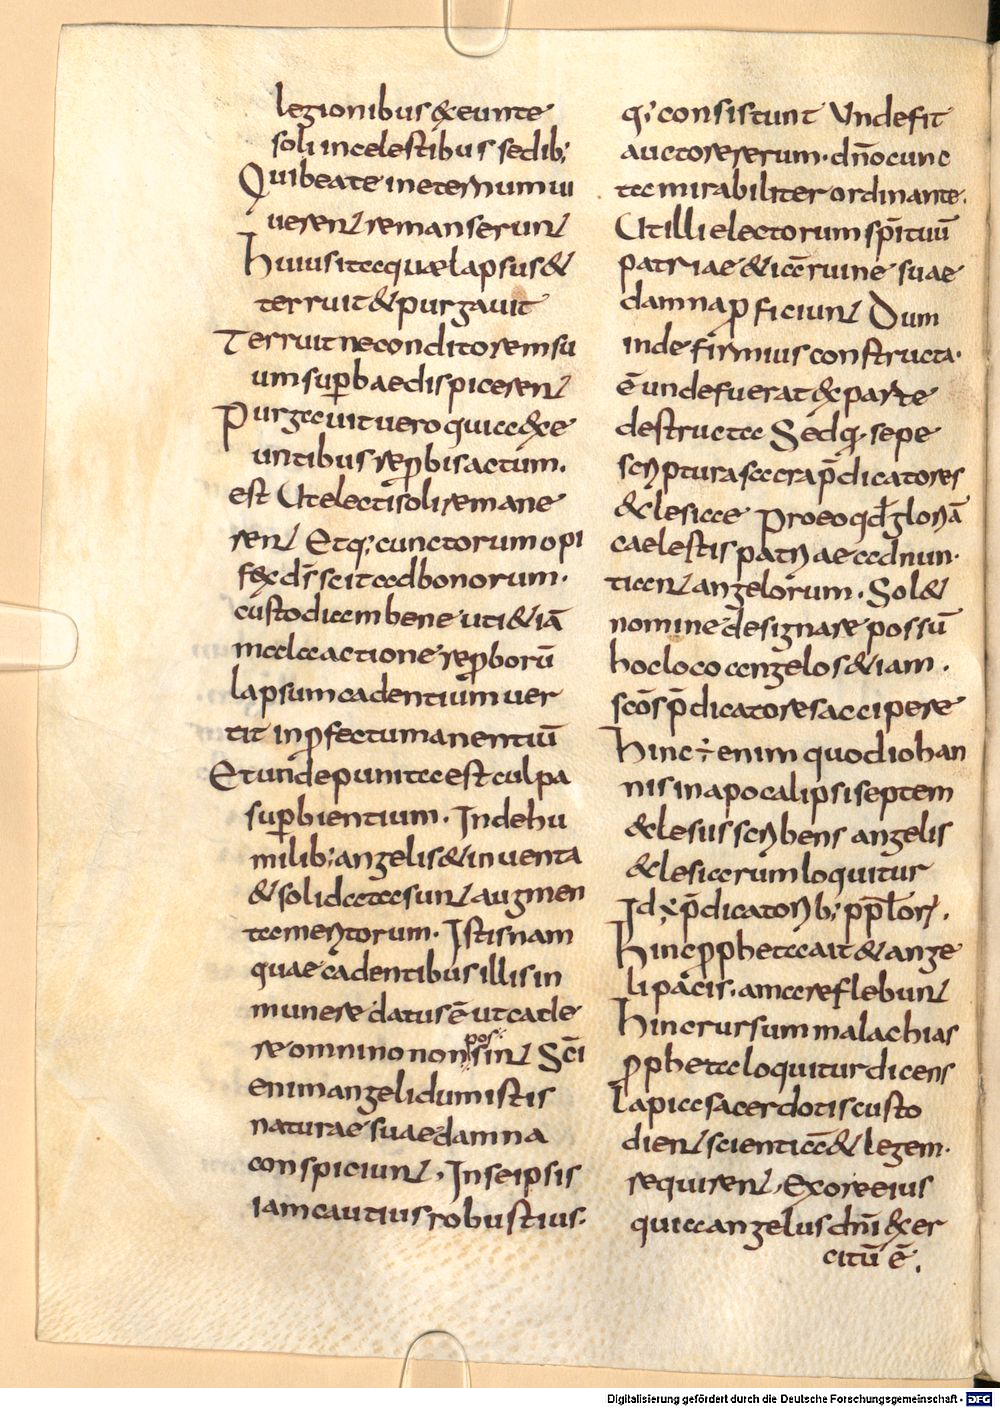 legionibus & eunte
soli in celestibus sedib;
Qui beate in eternum ui
uerent remanserunt
huius itaque lapsus &
terruit & purgauit
Terruit ne conditorem su
um suꝑbae dispicerent
Purgauit uero quia exe
untibus reꝓbis actum.
est Ut electi soli remane
rent Et q; cunctorum opi
fex d̄s scit ad bonorum.
custodiam bene uti & iā
mala actione reꝓborū
lapsum cadentium uer
tit in ꝓfectu manentiū
Et unde punita est culpa
suꝑbientium. Inde hu
milib; angelis & inuenta
& solidata sunt augmen
ta meritorum. Istis nam
quae cadentibus illis in
munere datus ē ut cade
re omnino non possint Sc̄i
enim angeli dum istis
naturae suae damna
conspiciunt, In se ipsis
iam cautius robustius.
q; consistunt Unde fit
auctore rerum. dn̄o cunc
ta mirabiliter ordinante.
Ut illi electorum sp̄ituū
patriae & iā ruine suae
damna ꝓficiunt Dum
inde firmius constructa.
ē unde fuerat ex parte
destructa Sed q. sepe
scriptura sacra p̄dicatores
eclesiae Pro eo qd̄ gloriā
caelestis patriae adnun.
tiant angelorum. Sol&
nomine designare possū
hoc loco angelos & iam.
sc̄os p̄dicatores accipere
hinc ÷ enim quod iohan
nis in apocalipsi septem
eclesiis scribens angelis
eclesiarum loquitur
Id ÷ p̄dicatorib; ppl̄or.
hinc ꝓpheta ait & ange
li pacis. amare flebunt
hinc rursum malachias
ꝓpheta loquitur dicens
Lapia sacerdotis custo
dient scientiā & legem.
requirent. Ex ore eius
quia angelus dn̄i exer
cituū ē.